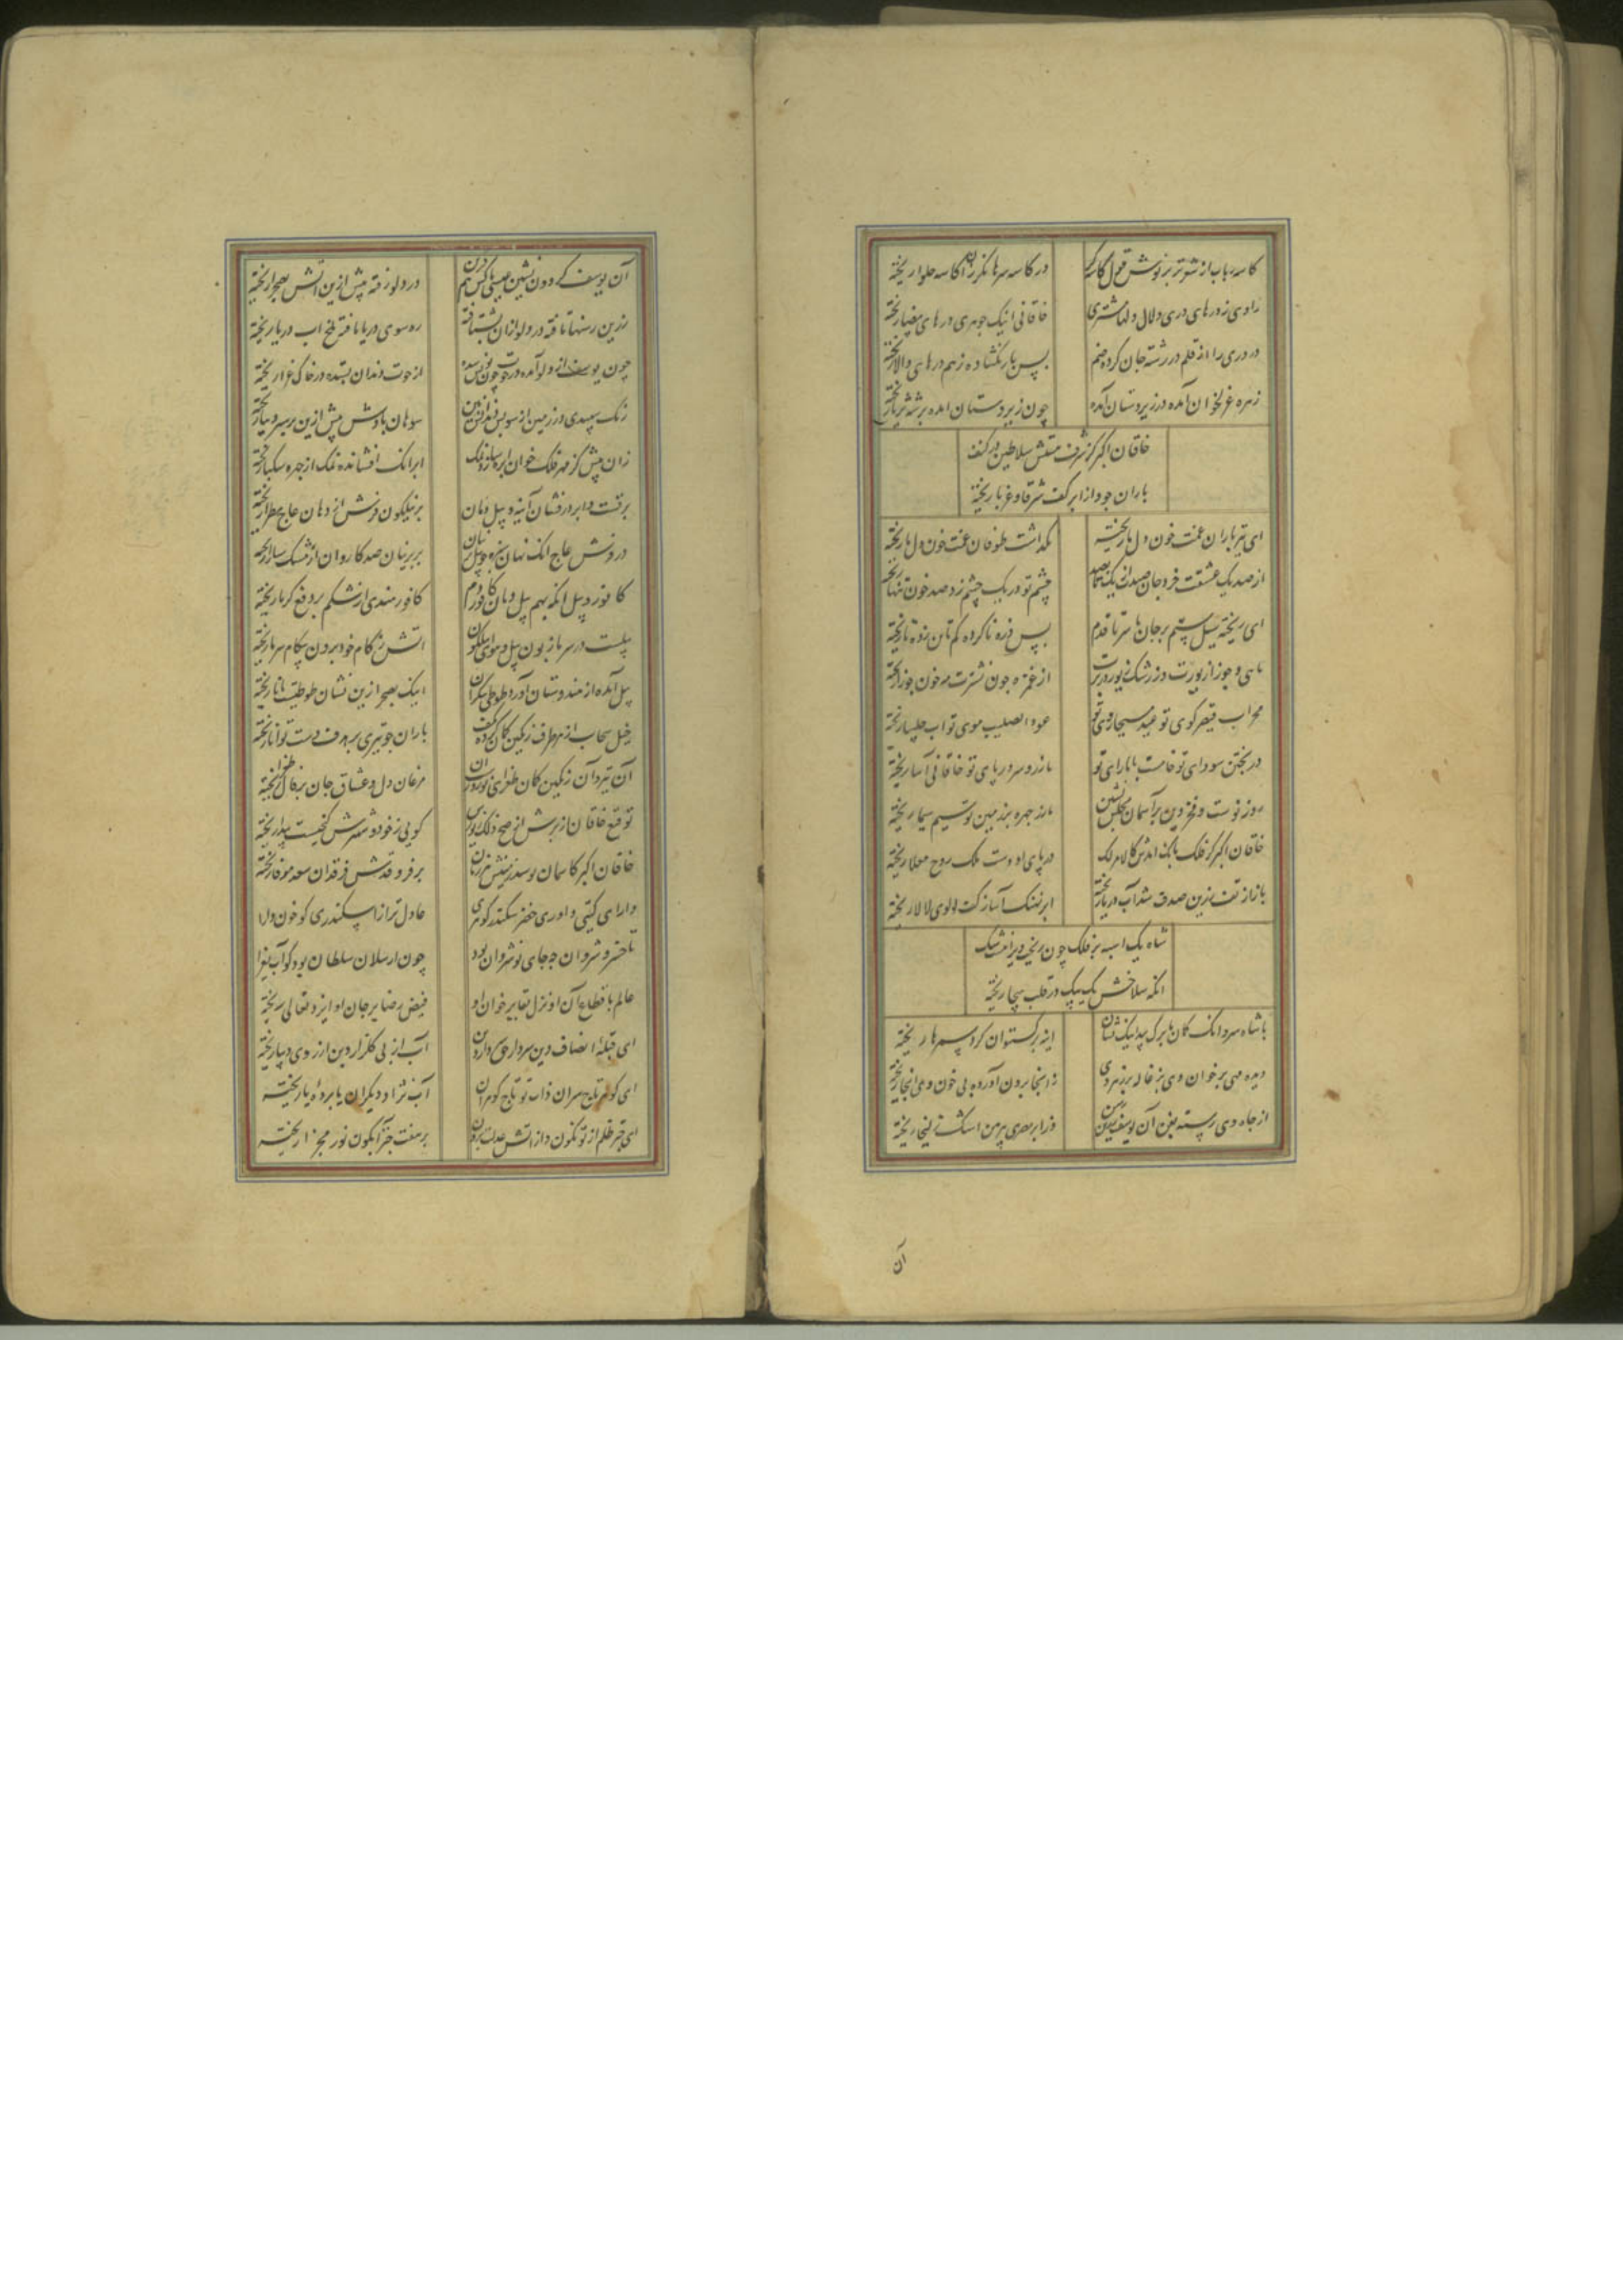 کاسه رباب از شعر تر بر نوش قول کاسه گر
در کاسه سرها نگر زان کاسه حلوا ریخته
راوی ز درهای دری دلال و دلها مشتری
خاقانی اینک جوهری درهای بیضا ریخته
در دری را از قلم در رشته جان کرده ضم
پس باز بگشاده ز هم درهای والا ریخته
زهره غزلخوان آمده در زیر و دستان آمده
چون زیر دستان آمده بر شه ثریا ریخته
خاقان اکبر کز شرف هستش سلاطین در کنف
باران جود از ابر کف شرقا و غربا ریخته
ای تیر باران غمت خون دل ما ریخته
نگذاشت طوفان غمت خون دل ما ریخته
از صد یک عشقت خرد جان صد از یک
چشم تو در یک چشم زد صد خون تنها ریخته
ای ریخته سیل ستم بر جان ما سر تا قدم
پس ذره ناکرده کم تا بن زده تا ریخته
ماهی و جوزا زیورت وز رشک زیور در برت
از غمزه چون نشترت مه خون جوزا ریخته
محراب قیصر کوی تو عید مسیحا روی تو
عود الصلیب موی تو آب چلیپا ریخته
در پختن سودای تو خامست ما را رای تو
ما زر و سر در پای تو خاقانی آسا ریخته
روز نوست و فخر دین بر آسمان مجلس نشین
ما زر چهره بر زمین تو سیم سیما ریخته
خاقان اکبر کز فلک بانک آمدش کالامر لک
در پای او دست ملک روح معلا ریخته
باز از تف زرین صدف شد آب دریا ریخته
ابر نهنک آسا ز کف لولوی لالا ریخته
شاه یک اسبه بر فلک خون ریخت دی را نیست شک
آنک سلاحش یک بیک در قلب هیجا ریخته
با شاه سرد آنک کمان با برک بید اینک نشان
آینه برگستوان گرد سپرها ریخته
دیده مهی بر خوان دی بزغاله پر زهر دی
ز انجا برون آورده پی خون وی انجا ریخته
از چاه دی رسته بفن آن یوسف زرین رسن
وز ابر مصری پیرهن اشک زلیخا ریخته
آن
آن یوسف گردون نشین عیسی پاکش هم قرین
در دلو رفته پیش ازین آتش بصحرا ریخته
زرین رسنها تافته در دلو ازان بشتافته
ره سوی دریا یافته تلخ آب دریا ریخته
چون یوسف از دلو آمده در حوت چون یونس شده
از حوت دندان بستده در خاک غرا ریخته
رنک سپیدی در زمین از سوبسو دندانش بین
سوهان بادش پیش ازین بر سبز دیبا ریخته
زان پیش کز مهر فلک خوان بره سازد ملک
ابر آنک افشانده نمک از چهره سکبا ریخته
برقست و ابر در فشان آینه و پیل دمان
بر نیلگون فرش از دهان عاج مطرا ریخته
در دهنش عاج آنک نهان سبزه و پیل
بر پرنیان صد کاروان از مشک سارا ریخته
کافور و پیل آنکه بهم پیل دمان کافور دم
کافور هندی از شکم بر دفع گرما ریخته
پیلست در سر ما زبون پیل و هوای نیلگون
آتش ز کام خود برون بیکام سرما ریخته
پیل آمده از هندوستان آورده طوطی بیکران
اینک بصحرا زین نشان طوطیست مانا ریخته
خیل سحاب از هر طرف رنگین کمان کرده بکف
باران چو تیری بر هدف دست توانا ریخته
آن تیر و آن رنگین کمان طغرای نوروزست
مرغان دل و عشاق جان بر فال طغرا ریخته
توقیع خاقان از برش صح ذلک زیورش
گویی ز خود و مغفرش گنجیست پیدا ریخته
خاقان اکبر کاسمان بوسد زمینش هر زمان
بر فر و قدرش فرقدان سعد موفا ریخته
دارای گیتی داوری خضر سکندر گوهری
عادل تر از اسکندری کو خون دارا
تا خسرو شروان بود چه جای نوشروان بود
چون ارسلان سلطان بود کو آب بغرا
عالم باقطاع آن او نزل بقا بر خوان او
فیض رضا بر جان او ایزد تعالی ریخته
ای قبله انصاف دین سردار حق دارای دین
آب از پی گلزار دین از روی دیبا ریخته
ای گوهر تاج سران ذات تو تاج گوهران
آب نژاد دیگران یا برده یا ریخته
ای چتر ظلم از تو نگون دزد از آتش عدلت برون
بر هفت چتر آبگون نور مجزا ریخته